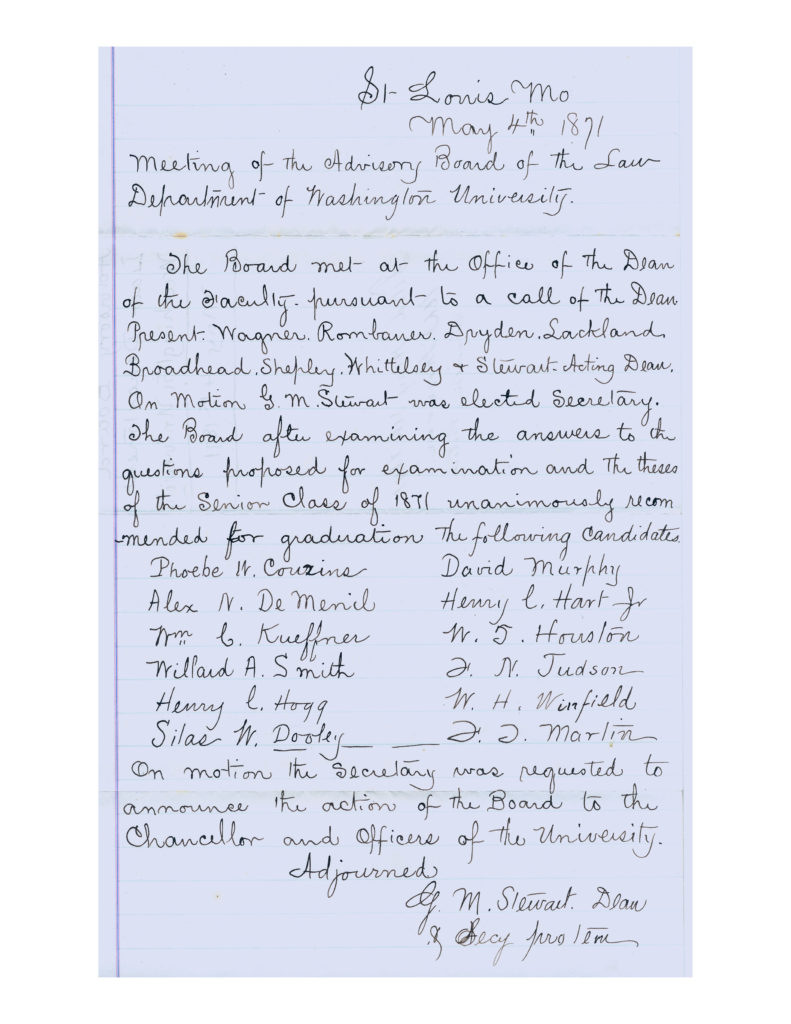 St Louis Mo
May 4th 1871
Meeting of the Advisory Board of the Law
Department of Washington University.
The Board met at the Office of the Dean
of the Faculty pursuant to a call of the Dean
Present. Wagner. Rombauer. Dryden. Lackland.
Broadhead. Shepley. Whittelsey & Stewart. Acting Dean.
On Motion G. M. Stewart was elected Secretary.
The Board after examining the answers to the
questions proposed for examination and the theses
of the Senior Class of 1871 unanimously recom
mended for graduation the following candidates.
Phoebe W. Couzins David Murphy
Alex N. De Menil Henry C. Hart Jr
Wm C. Kueffner W. J. Houston
Willard A. Smith F. N. Judson
Henry C. Hogg W. H. Winfield
Silas W. Dooley F. J. Martin
On motion the Secretary was requested to
announce the action of the Board to the
Chancellor and Officers of the University.
Adjourned
G. M. Stewart. Dean
& Secy pro tem